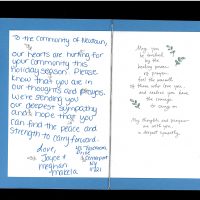 To the Community of Newtown,
our hearts are hurting for
your community this
Holiday season. Please
know that you are in
our thoughts and prayers.
we're sending you
our deepest sympathy
and hope that you
can find the peace and
strength to carry forward.
Love,
Joyce &
Meghan
May you
be comforted
by the
healing power
of prayer,
feel the warmth
of those who love you,
and embrace you have
the courage
to carry on
My thoughts and prayers
are with you
in deepest sympathy.